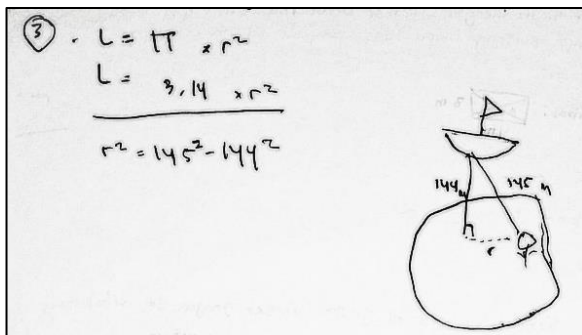 3 . L = π × r²
L = 3,14 × r²
r² = 145² - 144²
144 m
145 m
r